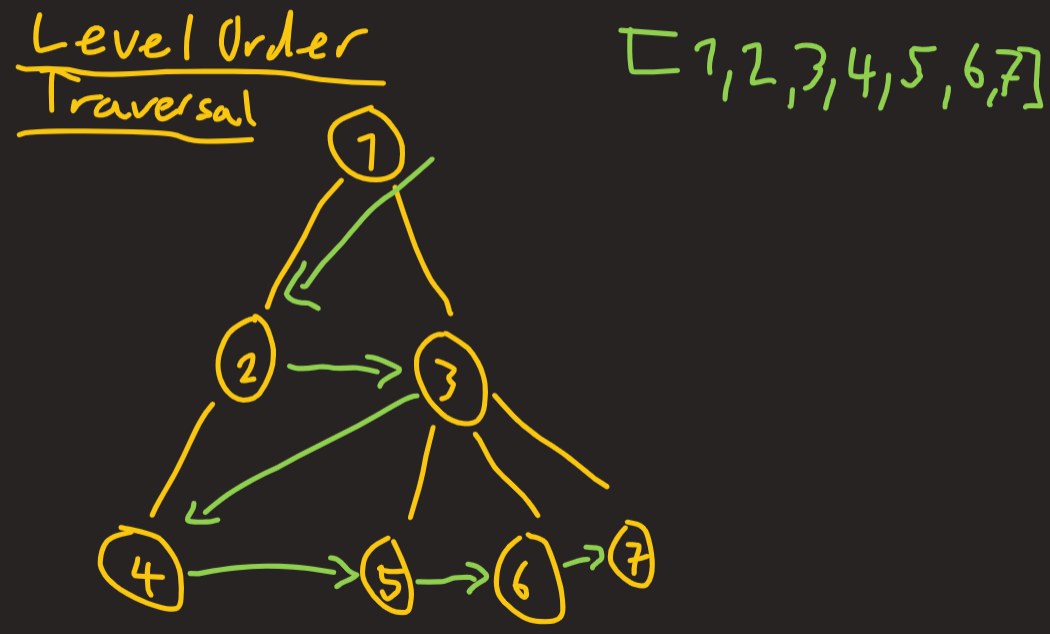 Level Order
Traversal
[1,2,3,4,5,6,7]
1
2
3
4
5
6
7